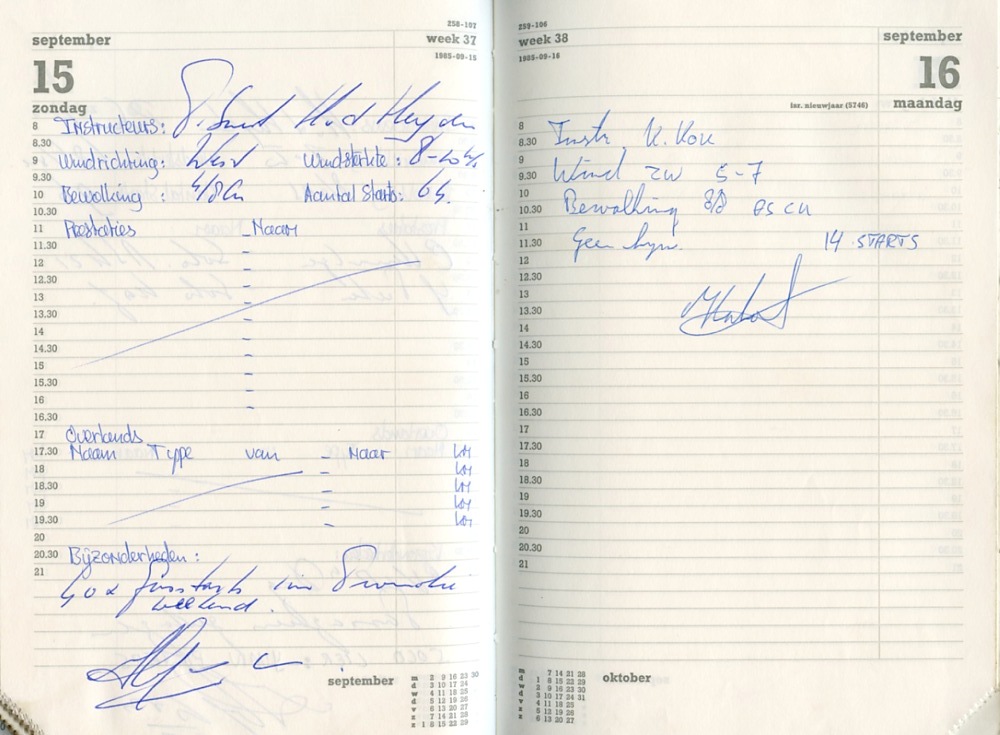 258-107
september week 37
1985-09-15
15
zondag
8 Instructeurs:
8.30
9 Windrichting: West Windsterkte: 8-10
9.30
10 Bewolking: 4/8 Cu Aantal Starts:
10.30
11 Prestaties - Naam
11.30 -
12 -
12.30 -
13 -
13.30 -
14 -
14.30 -
15 -
15.30 -
16 -
16.30
17 Overlands
17.30 Naam Type van - Naar km
18 - km
18.30 - km
19 - km
19.30 - km
20
20.30 Bijzonderheden:
21
40x in Promotie
weekend.
september
m 2 9 16 23 30
d 3 10 17 24
w 4 11 18 25
d 5 12 19 26
v 6 13 20 27
z 7 14 21 28
z 1 8 15 22 29
259-106
week 38 september
1985-09-16
16
isr. nieuwjaar (5746) maandag
8
8.30 Instr. K. Kok
9
9.30 Wind ZW 5-7
10
10.30 Bewolking 8/8 as cu
11
11.30 Geen 14 STARTS
12
12.30
13
13.30
14
14.30
15
15.30
16
16.30
17
17.30
18
18.30
19
19.30
20
20.30
21
oktober
m 7 14 21 28
d 1 8 15 22 29
w 2 9 16 23 30
d 3 10 17 24 31
v 4 11 18 25
z 5 12 19 26
z 6 13 20 27